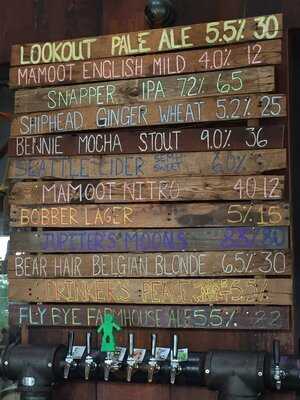 LOOKOUT PALE ALE 5.5% 30
MAMOOT ENGLISH MILD 4.0% 12
SNAPPER IPA 7.2% 65
SHIPHEAD GINGER WHEAT 5.2% 25
BENNIE MOCHA STOUT 9.0% 36
SEATTLE CIDER 6.0%
MAMOOT NITRO 4.0 12
BOBBER LAGER 5% 15
JUPITER'S MOONS 30
BEAR HAIR BELGIAN BLONDE 6.5% 30
DRINKERS PEACE 6.5%
FLY BYE FARMHOUSE ALE 5.5% 22